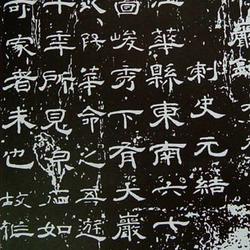 刺史元結
華縣東南六七
面峻秀下有大巖
陽華命之吾遊
十年所見泉石如
可家者未也故作